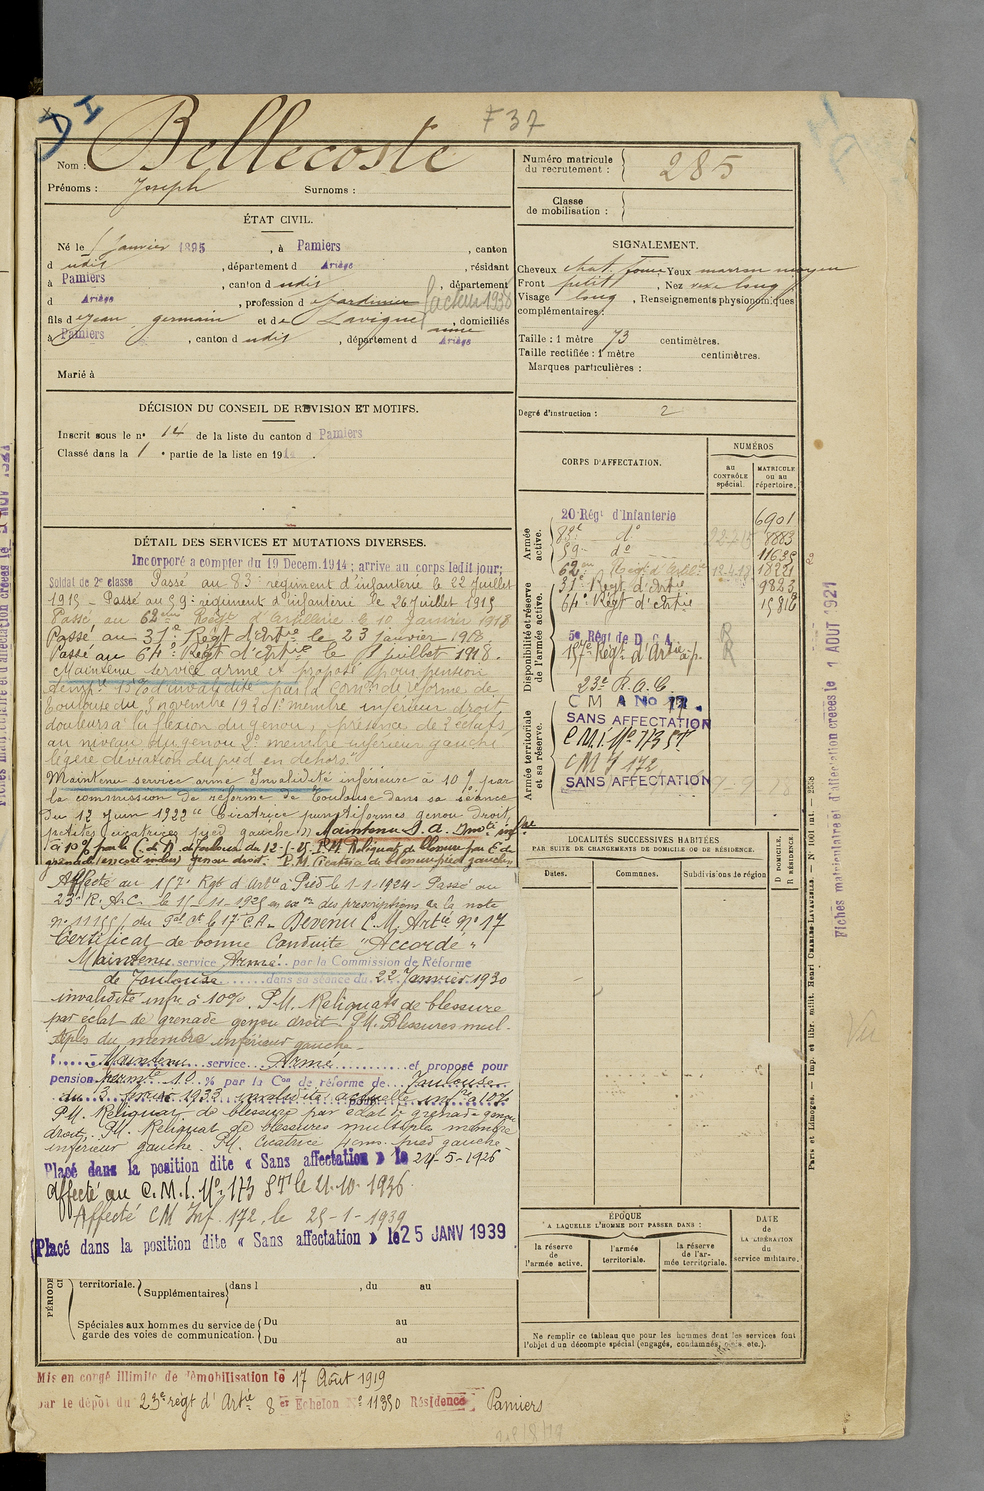 F 37
Nom : Bellecoste
Prénoms : Joseph Surnoms :
ÉTAT CIVIL.
Né le 5 Janvier 1895, à Pamiers, canton
d udit, département d Ariège, résidant
à Pamiers, canton d udit, département
d Ariège, profession d e jardinier facteur 1930
fils d e Jean germain et de Lavigne anne, domiciliés
à Pamiers, canton d udit, département d Ariège
Marié à
DÉCISION DU CONSEIL DE REVISION ET MOTIFS.
Inscrit sous le n° 14 de la liste du canton d Pamiers
Classé dans la 1e partie de la liste en 191
DÉTAIL DES SERVICES ET MUTATIONS DIVERSES.
Incorporé a compter du 19 Decem. 1914 ; arrive au corps ledit jour;
Soldat de 2e classe Passé au 83e regiment d'infanterie le 22 Juillet
1915 - Passé au 59e regiment d'infanterie le 26 Juillet 1915
Passé au 62ème Régt d'Artillerie le 10 Janvier 1918
Passé au 37e Régt d'Artie le 23 Janvier 1918
Passé au 64e Régt d'Artie le 1 juillet 1918.
Maintenu service armé et proposé pour pension
temp. 15% d'invalidité par la comon de réforme de
Toulouse du 3 novembre 1920 1° membre inférieur droit
douleurs à la flexion du genou, présence de 2 éclats
au niveau du genou 2° membre inférieur gauche
légère déviation du pied en dehors.
Maintenu service armé Invalidité inférieure à 10 % par
la commission de réforme de Toulouse dans sa séance
du 12 Juin 1922 "Cicatrice punctiformes genou droit,
petites cicatrices pied gauche" Maintenu S. A. Invté infre
à 10% par la C. de R. de Toulouse du 12-1-25. P.M. Reliquats de blessure par E. de
grenade genou droit. P.M. Cicatrice de blessure pied gauche
Affecté au 157e Régt d'Artie à Pied le 1-1-1924 - Passé au
23e R.A.C. le 15-11-1925 en exon des prescriptions de la note
n° 11155/1 du Gal Ct le 17e C.A. - Devenu C.M. Artie N° 17
Certificat de bonne Conduite "Accordé"
Maintenu service Armé par la Commission de Réforme
de Toulouse dans sa séance du 22 Janvier 1930
invalidité infre à 10%. P.M. Reliquats de blessure
par éclat de grenade genou droit - P.M. Blessures mul-
tiples du membre inférieur gauche -
Maintenu service Armé et proposé pour
pension permte 10 % par la Con de réforme de Toulouse
du 3 1933 invalidité actuelle infre à 10%
P.M. Reliquat de blessure par éclat de grenade genou
droit. P.M. Reliquat de blessures multiples membre
inférieur gauche. P.M. Cicatrice 4cm. pied gauche -
Placé dans la position dite « Sans affectation » le 24-5-1926
Affecté au C.M.I. N° 173 le 21.10.1936.
Affecté CM Inf. 172, le 25-1-1939
Placé dans la position dite « Sans affectation » le 25 JANV 1939
PÉRIODE
territoriale. Supplémentaires dans l , du au
Spéciales aux hommes du service de garde des voies de communication. Du au
Du au
Mis en congé illimité de démobilisation le 17 Août 1919
par le dépôt du 23e régt d'Artie 8er Echelon N° 11350 Résidence Pamiers
Numéro matricule du recrutement : 285
Classe de mobilisation :
SIGNALEMENT.
Cheveux chat. foncé Yeux marron moyen
Front petit, Nez vexe long
Visage long, Renseignements physionomiques
complémentaires :
Taille : 1 mètre 73 centimètres.
Taille rectifiée : 1 mètre centimètres.
Marques particulières :
Degré d'instruction : 2
CORPS D'AFFECTATION.
NUMÉROS
au CONTRÔLE spécial.
MATRICULE ou au répertoire.
Armée active.
20e Régt d'Infanterie 6901
83e d° 8883
59e d° 11635
62em Régt d'Artie 18221
37e Régt d'Artie 9323
64e Régt d'Artie 15816
Disponibilité et réserve de l'armée active.
5e Régt de D.C.A. R
157e Régt d'Artie à p. R
23e R.A.C.
Armée territoriale et sa réserve.
C M A No 17.
SANS AFFECTATION
C M I. N° 173
CM I 172
SANS AFFECTATION
LOCALITÉS SUCCESSIVES HABITÉES
PAR SUITE DE CHANGEMENTS DE DOMICILE OU DE RÉSIDENCE.
D DOMICILE. R RÉSIDENCE.
Dates. Communes. Subdivisions de région
ÉPOQUE
A LAQUELLE L'HOMME DOIT PASSER DANS :
la réserve de l'armée active.
l'armée territoriale.
la réserve de l'armée territoriale.
DATE de LA LIBÉRATION du service militaire.
Ne remplir ce tableau que pour les hommes dont les services font
l'objet d'un décompte spécial (engagés, condamnés, omis etc.).
Fiches matricule et d'affectation créées le 1 AOUT 1921
Paris et Limoges. — Imp. et libr. milit. Henri CHARLES-LAVAUZELLE. — N° 1001 int. — 2558
Vu